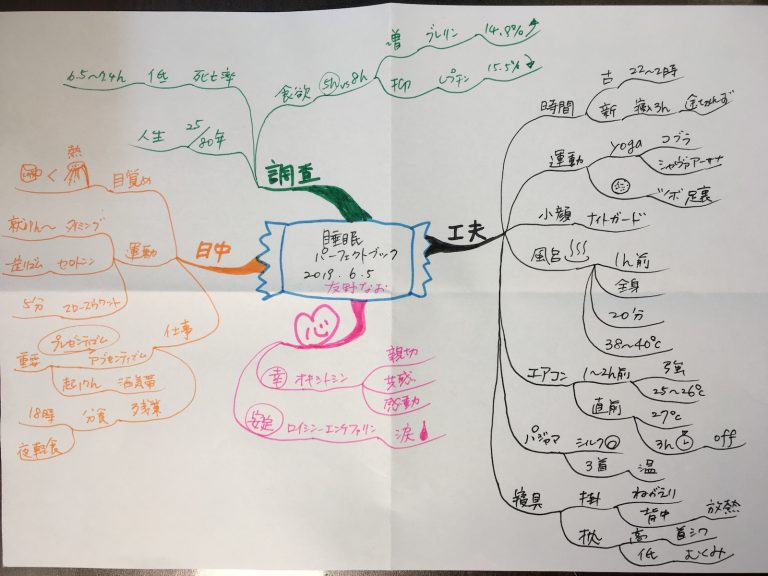 睡眠
パーフェクトブック
2019.6.5
友野なお
調査
食欲 5h vs 8h
増 グレリン 14.9%
抑 レプチン 15.5%
6.5〜7.4h 低 死亡率
人生 25/80年
工夫
時間
古 22〜2時
新 寝3h
運動
yoga
コブラ
シャヴァアーサナ
ツボ 足裏
小顔 ナイトガード
風呂
1h前
全身
20分
38〜40℃
エアコン
1〜2h前
強
25〜26℃
直前
27℃
3h off
パジャマ
シルク
3首 温
寝具
掛
ねがえり
背中 放熱
枕
高 首シワ
低 むくみ
心
幸 オキシトシン
親切
共感
感動
安定 ロイシンーエンケファリン 涙
日中
目覚め
熱
く
運動
タイミング
セロトニン
5分 スロースクワット
仕事
プレゼンティズム
アブセンティズム
重要
起17h
残業
分食
18時
夜軽食